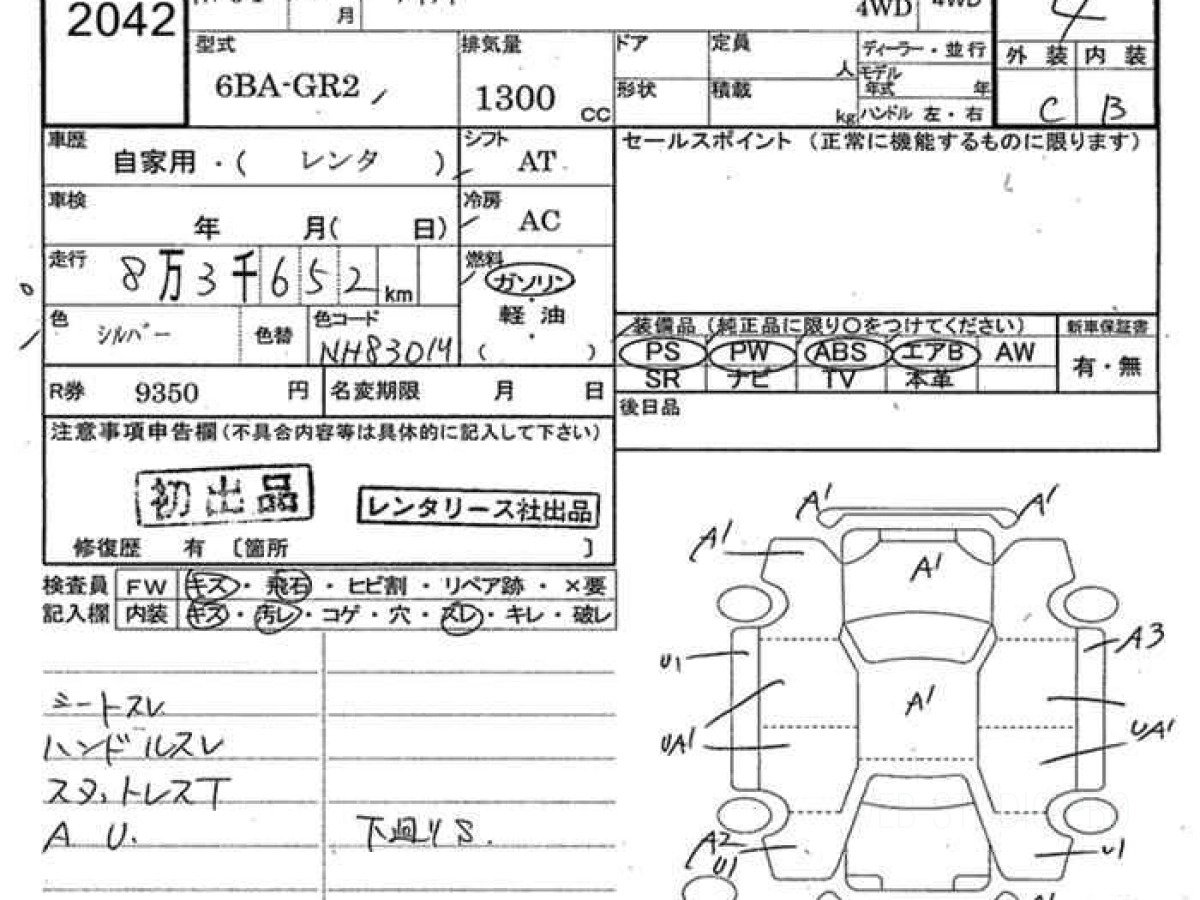 2042
月
4WD
4
型式
6BA-GR2
排気量
1300 cc
ドア
定員 人
形状
積載 kg
ディーラー・並行
モデル年式 年
ハンドル 左・右
外装 内装
C B
車歴
自家用・( レンタ )
シフト
AT
セールスポイント (正常に機能するものに限ります)
車検
年 月( 日)
冷房
AC
走行
8万3千652km
燃料
ガソリン
軽油
( )
色
シルバー
色替
色コード
NH830M
装備品 (純正品に限り○をつけてください)
新車保証書
PS PW ABS エアB AW
有・無
SR ナビ TV 本革
R券 9350 円
名変期限 月 日
後日品
注意事項申告欄(不具合内容等は具体的に記入して下さい)
初出品
レンタリース社出品
修復歴 有 〔箇所 〕
検査員 FW キズ・飛石・ヒビ割・リペア跡・×要
記入欄 内装 キズ・汚レ・コゲ・穴・スレ・キレ・破レ
シートスレ
ハンドルスレ
スタットレスT
A U.
下廻りS.
A1 A1
A1
A1
U1
A3
A1
UA1
UA1
A2
U1
U1